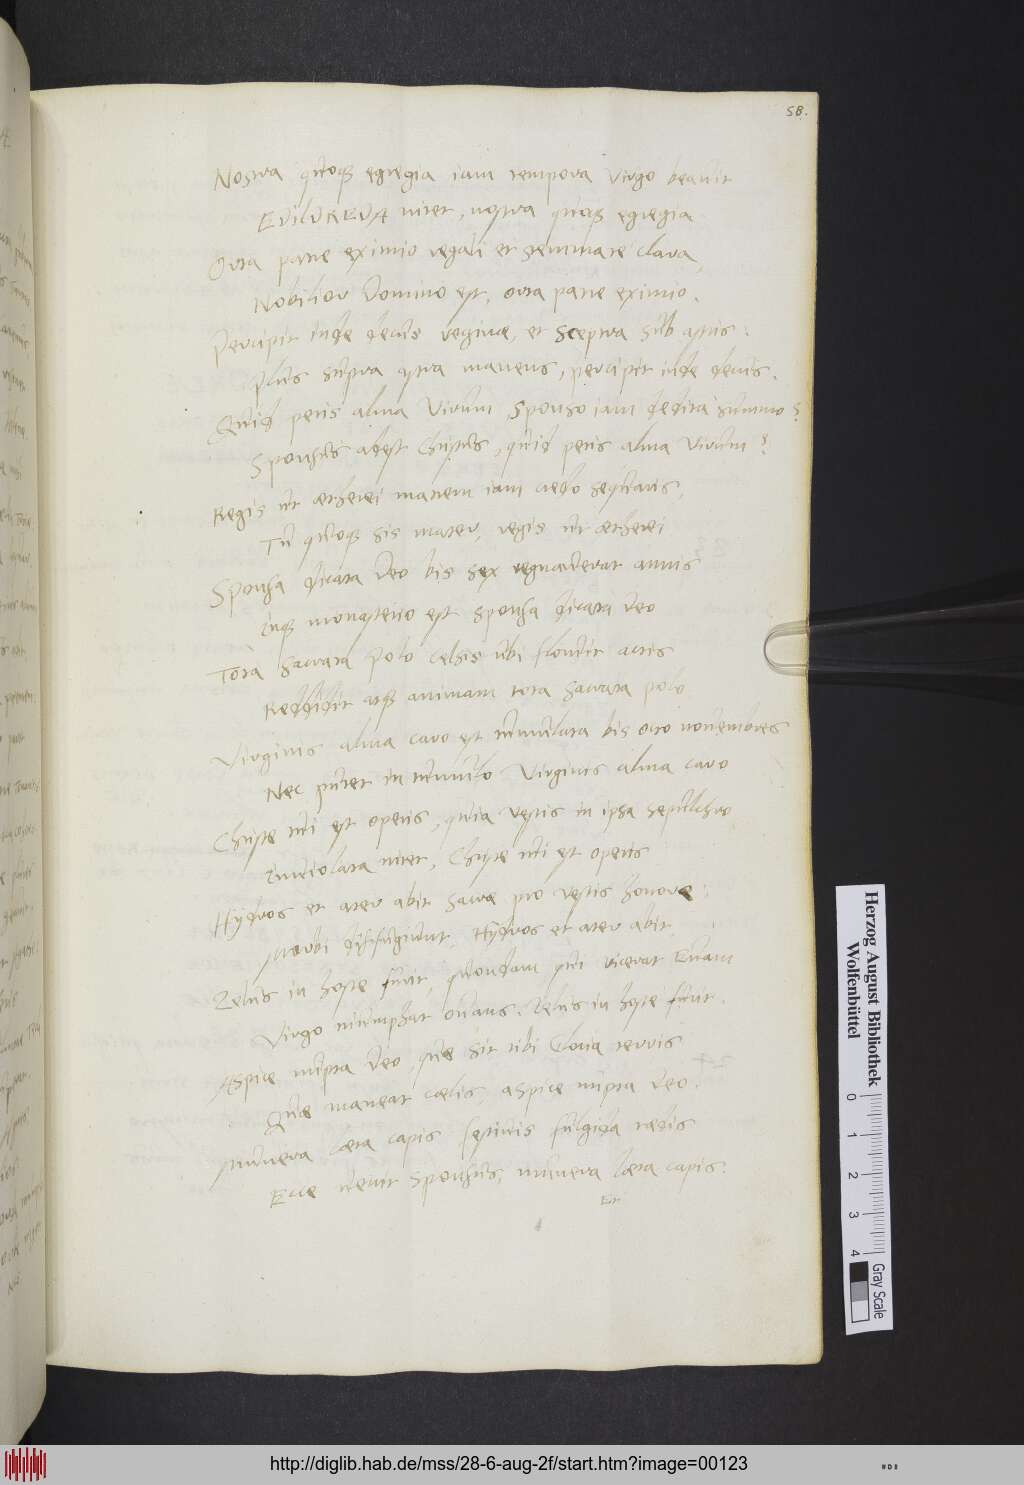 58.
Nostra quoq; egregia iam tempora virgo beauit
EDILDREDA nitet, nostra quoq; egregia
Orta patre eximio regali et stemmate clara,
Nobilior Domino est, orta patre eximio.
Percipit inde decus reginae, et sceptra sub astris:
Plus supra astra manens, percipit inde decus.
Quid petis alma virum, sponso iam dedita summo?
Sponsus adest Christus, quid petis alma virum?
Regis ut aetherei matrem iam credo sequaris,
Tu quoq; sis mater, regis ut aetherei
Sponsa dicata Deo bis sex regnauerat annis
Inq; monasterio est sponsa dicata Deo
Tota sacrata polo celsis ubi floruit actis
Reddidit atq; animam tota sacrata polo
Virginis alma caro est tumulata bis octo nouembres
Nec putet in tumulo Virginis alma caro
Christe tui est operis, quia vestis in ipsa sepulchro
Inuiolata nitet, Christe tui est operis
Hydros et ater abit sacrae pro vestis honore:
Morbi diffugiunt, Hydros et ater abit
Zelus in hoste furit, quondam qui vicerat Euam
Virgo triumphat ouans. Zelus in hoste furit.
Aspice nupta Deo, quae sit tibi gloria terris
Quae maneat coelis, aspice nupta Deo.
Munera laeta capis festiuis fulgida taedis
Ecce uenit Sponsus, munera laeta capis.
Et
Herzog August Bibliothek
Wolfenbüttel
0 1 2 3 4
Gray Scale
http://diglib.hab.de/mss/28-6-aug-2f/start.htm?image=00123